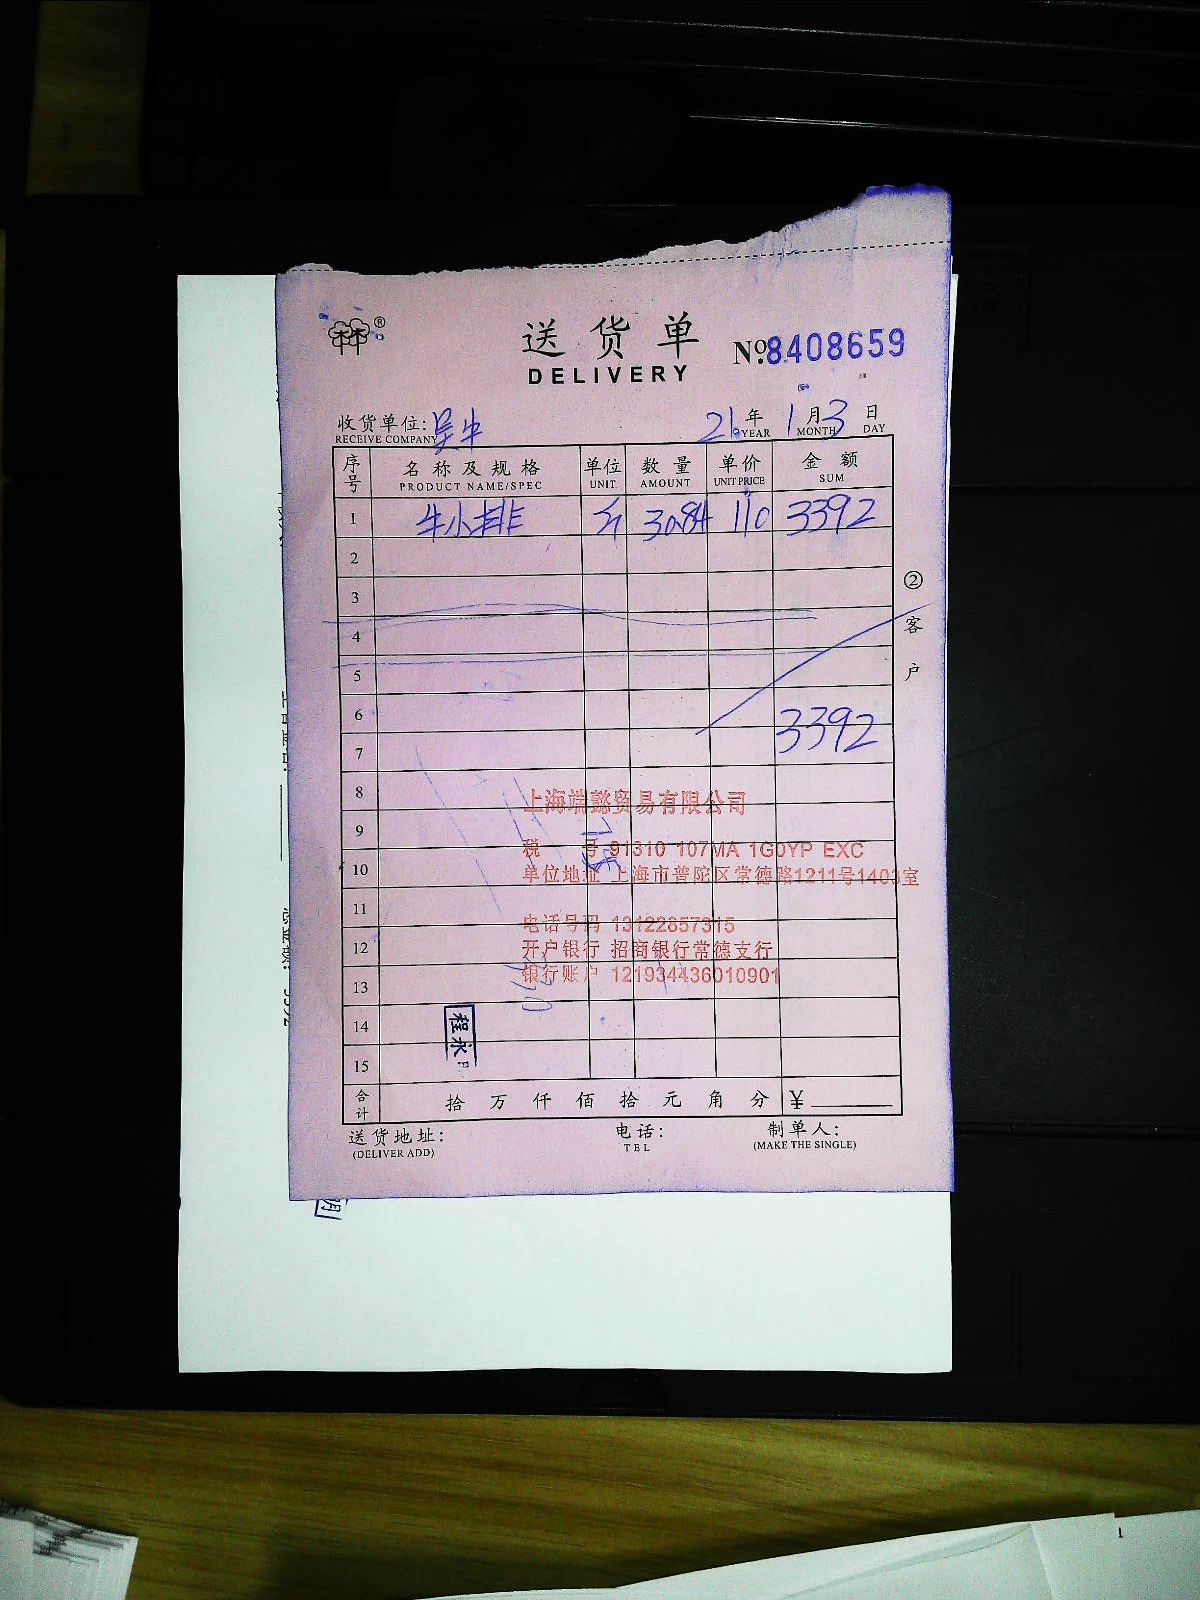 ®
送货单 №8408659
DELIVERY
收货单位: 吴中 21.年 1月3日
RECEIVE COMPANY YEAR MONTH DAY
序号 名称及规格 单位 数量 单价 金额
PRODUCT NAME/SPEC UNIT AMOUNT UNIT PRICE SUM
1 牛小排 斤 30.84 110 3392
2
3
4
5
6
7 3392
8 上海端懿贸易有限公司
9 税 号 91310 107MA 1G0YP EXC
10 单位地址 上海市普陀区常德路1211号1403室
11 电话号码 13122857315
12 开户银行 招商银行常德支行
13 银行账户 121934436010901
14 程永
15
合计 拾 万 仟 佰 拾 元 角 分 ¥
送货地址: 电话: 制单人:
(DELIVER ADD) TEL (MAKE THE SINGLE)
② 客户